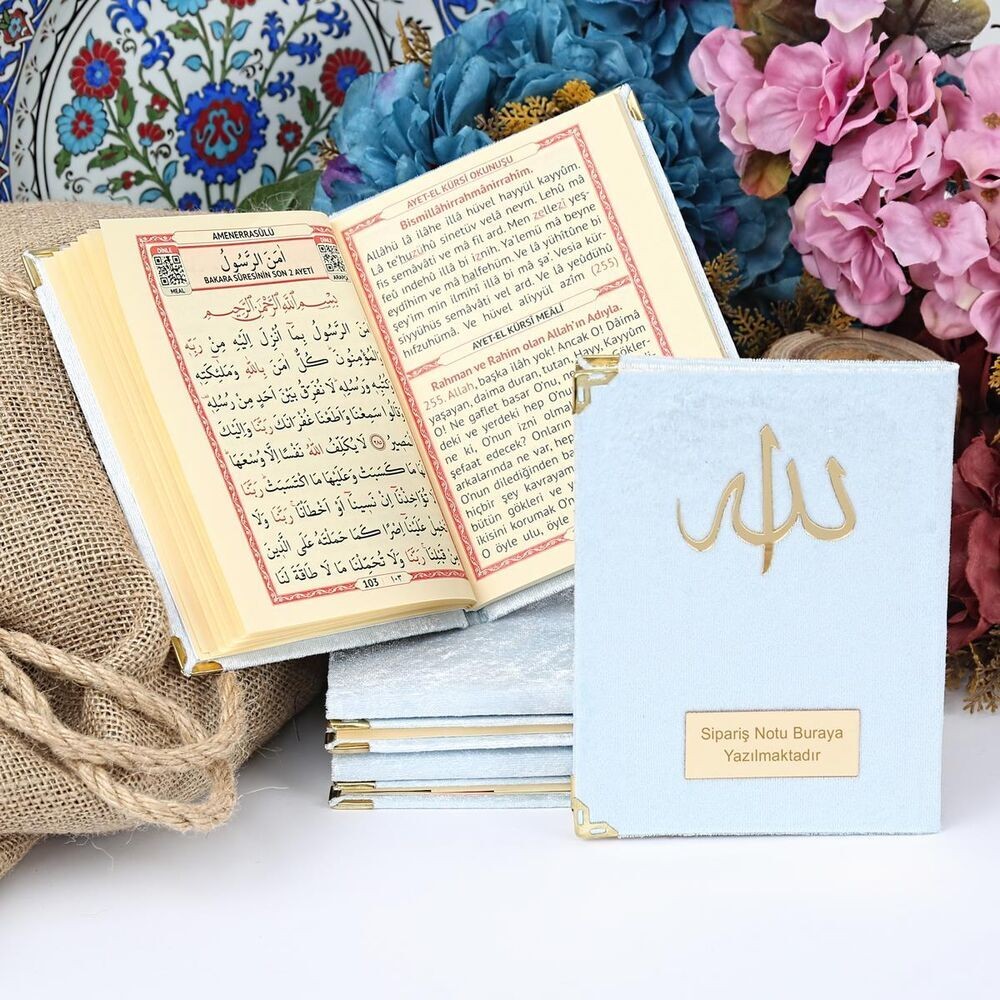 AMENERRASÛLÜ
DİNLE
MEAL
DİNLE
اٰمَنَ الرَّسُولُ
BAKARA SÛRESİNİN SON 2 AYETİ
بِسْمِ اللّٰهِ الرَّحْمٰنِ الرَّحِيمِ
اٰمَنَ الرَّسُولُ بِمَٓا اُنْزِلَ اِلَيْهِ مِنْ رَبِّهٖ
وَالْمُؤْمِنُونَ كُلٌّ اٰمَنَ بِاللّٰهِ وَمَلٰٓئِكَتِهٖ
وَكُتُبِهٖ وَرُسُلِهٖ لَا نُفَرِّقُ بَيْنَ اَحَدٍ مِنْ رُسُلِهٖ
وَقَالُوا سَمِعْنَا وَاَطَعْنَا غُفْرَانَكَ رَبَّنَا وَاِلَيْكَ
الْمَصِيرُ ﴿٢٨٥﴾ لَا يُكَلِّفُ اللّٰهُ نَفْسًا اِلَّا وُسْعَهَا
لَهَا مَا كَسَبَتْ وَعَلَيْهَا مَا اكْتَسَبَتْ رَبَّنَا
لَا تُؤَاخِذْنَٓا اِنْ نَسِينَٓا اَوْ اَخْطَاْنَا رَبَّنَا وَلَا
تَحْمِلْ عَلَيْنَٓا اِصْرًا كَمَا حَمَلْتَهُ عَلَى الَّذِينَ
مِنْ قَبْلِنَا رَبَّنَا وَلَا تُحَمِّلْنَا مَا لَا طَاقَةَ لَنَا
103 ١٠٣
AYET-EL KÜRSÎ OKUNUŞU
Bismillâhirrahmânirrahîm.
Allâhü lâ ilâhe illâ hüvel hayyül kayyûm.
Lâ te'huzühü sinetüv velâ nevm. Lehû mâ
fis semâvâti ve mâ fil ard. Men zellezî yeş-
feû indehû illâ bi iznih. Ya'lemü mâ beyne
eydîhim ve mâ halfehüm. Ve lâ yühîtûne bi
şey'im min ilmihî illâ bi mâ şâ'. Vesia kür-
siyyühüs semâvâti vel ard. Ve lâ yeûdühû
hıfzuhümâ. Ve hüvel aliyyül azîm. (255)
AYET-EL KÜRSÎ MEÂLİ
Rahman ve Rahim olan Allah'ın Adıyla.
255. Allah, başka ilah yok! Ancak O! Dâima
yaşayan, daima duran, tutan, Hayy, Kayyûm
O! Ne gaflet basar O'nu,
deki ve yerdeki hep O'nun
ne ki, O'nun izni olma
şefaat edecek? Onların
arkalarında ne var, hep
O'nun dilediğinden baş
hiçbir şey kavrayama
bütün gökleri ve
ikisini korumak O'n
O öyle ulu, öyle
الله
Sipariş Notu Buraya
Yazılmaktadır